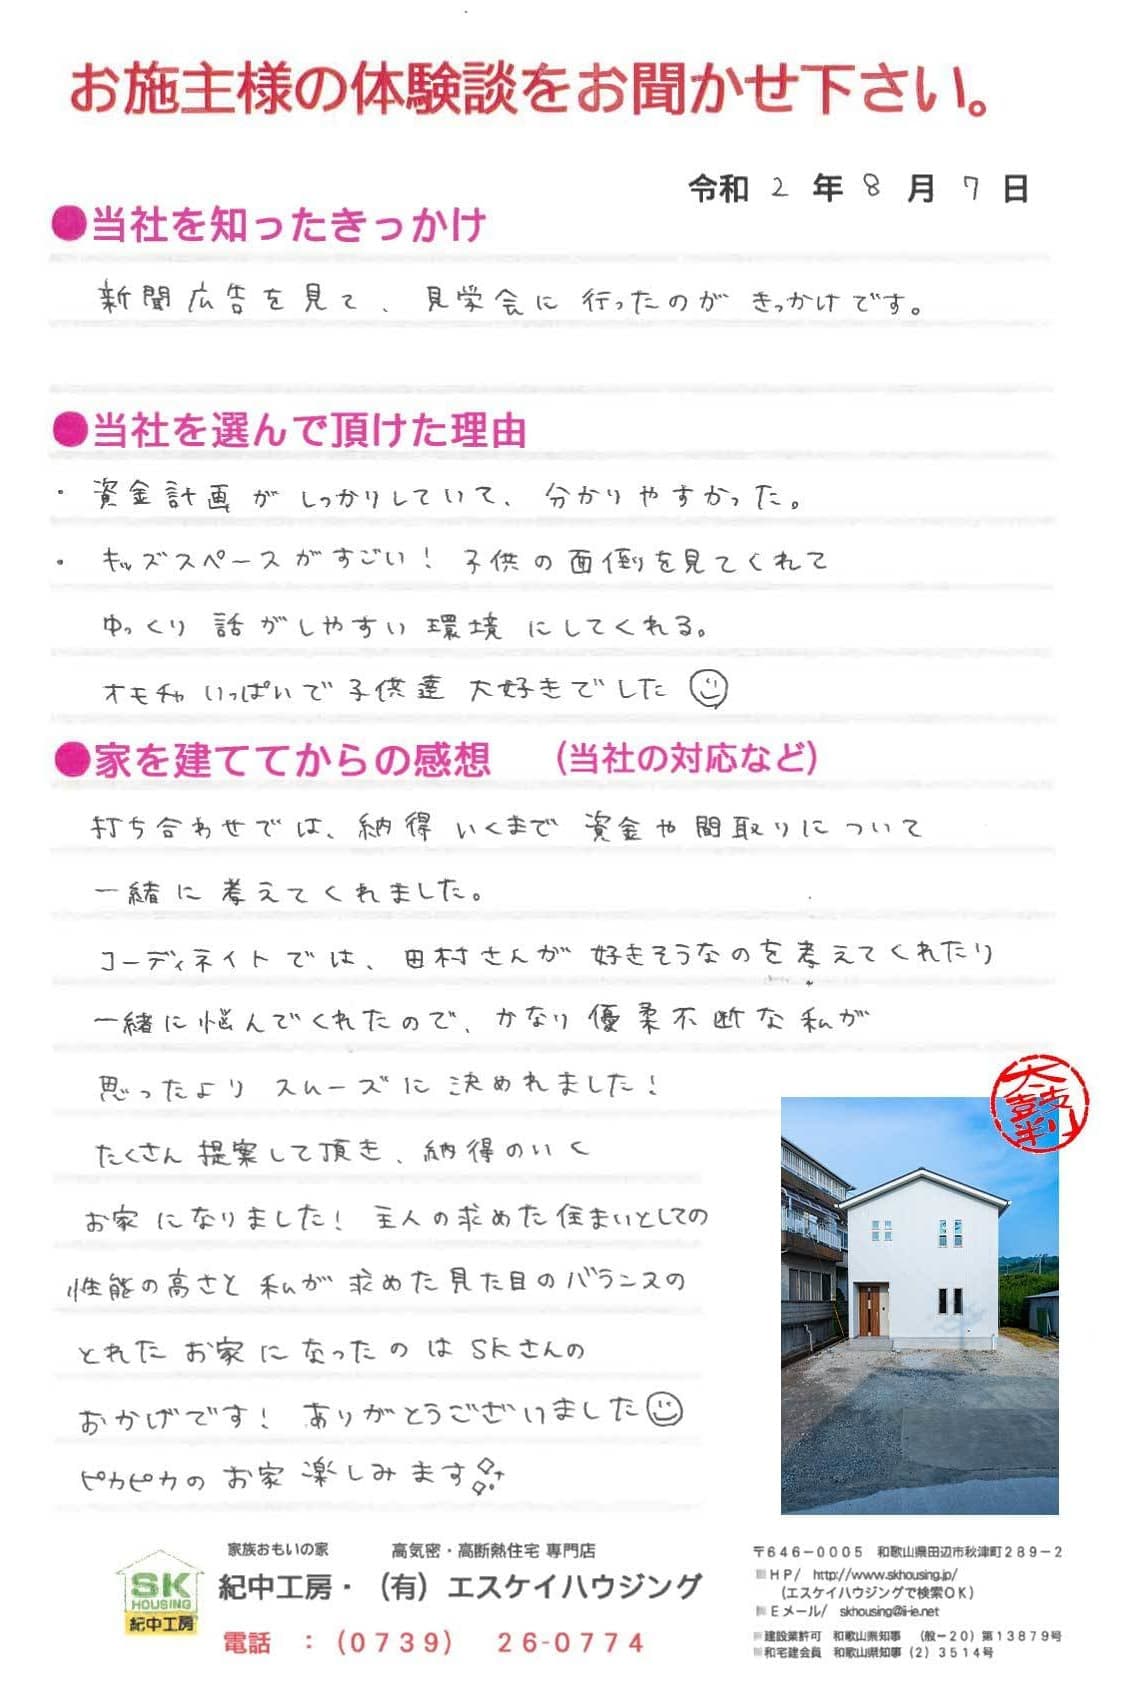 お施主様の体験談をお聞かせ下さい。
令和 2 年 8 月 7 日
●当社を知ったきっかけ
新聞広告を見て、見学会に行ったのがきっかけです。
●当社を選んで頂けた理由
・資金計画がしっかりしていて、分かりやすかった。
・キッズスペースがすごい！子供の面倒を見てくれて
ゆっくり話がしやすい環境にしてくれる。
オモチャいっぱいで子供達大好きでした
●家を建ててからの感想　（当社の対応など）
打ち合わせでは、納得いくまで資金や間取りについて
一緒に考えてくれました。
コーディネイトでは、田村さんが好きそうなのを考えてくれたり
一緒に悩んでくれたので、かなり優柔不断な私が
思ったよりスムーズに決めれました！
たくさん提案して頂き、納得のいく
お家になりました！主人の求めた住まいとしての
性能の高さと私が求めた見た目のバランスの
とれたお家になったのはSKさんの
おかげです！ありがとうございました
ピカピカのお家楽しみます
太鼓判
家族おもいの家　高気密・高断熱住宅 専門店
紀中工房・（有）エスケイハウジング
SK
HOUSING
紀中工房
電話　：（0739）　26-0774
〒646－0005　和歌山県田辺市秋津町289－2
■HP/　http://www.skhousing.jp/
（エスケイハウジングで検索OK）
■Eメール/　skhousing@i-ie.net
■建設業許可　和歌山県知事　（般－20）第13879号
■和宅建会員　和歌山県知事（2）3514号